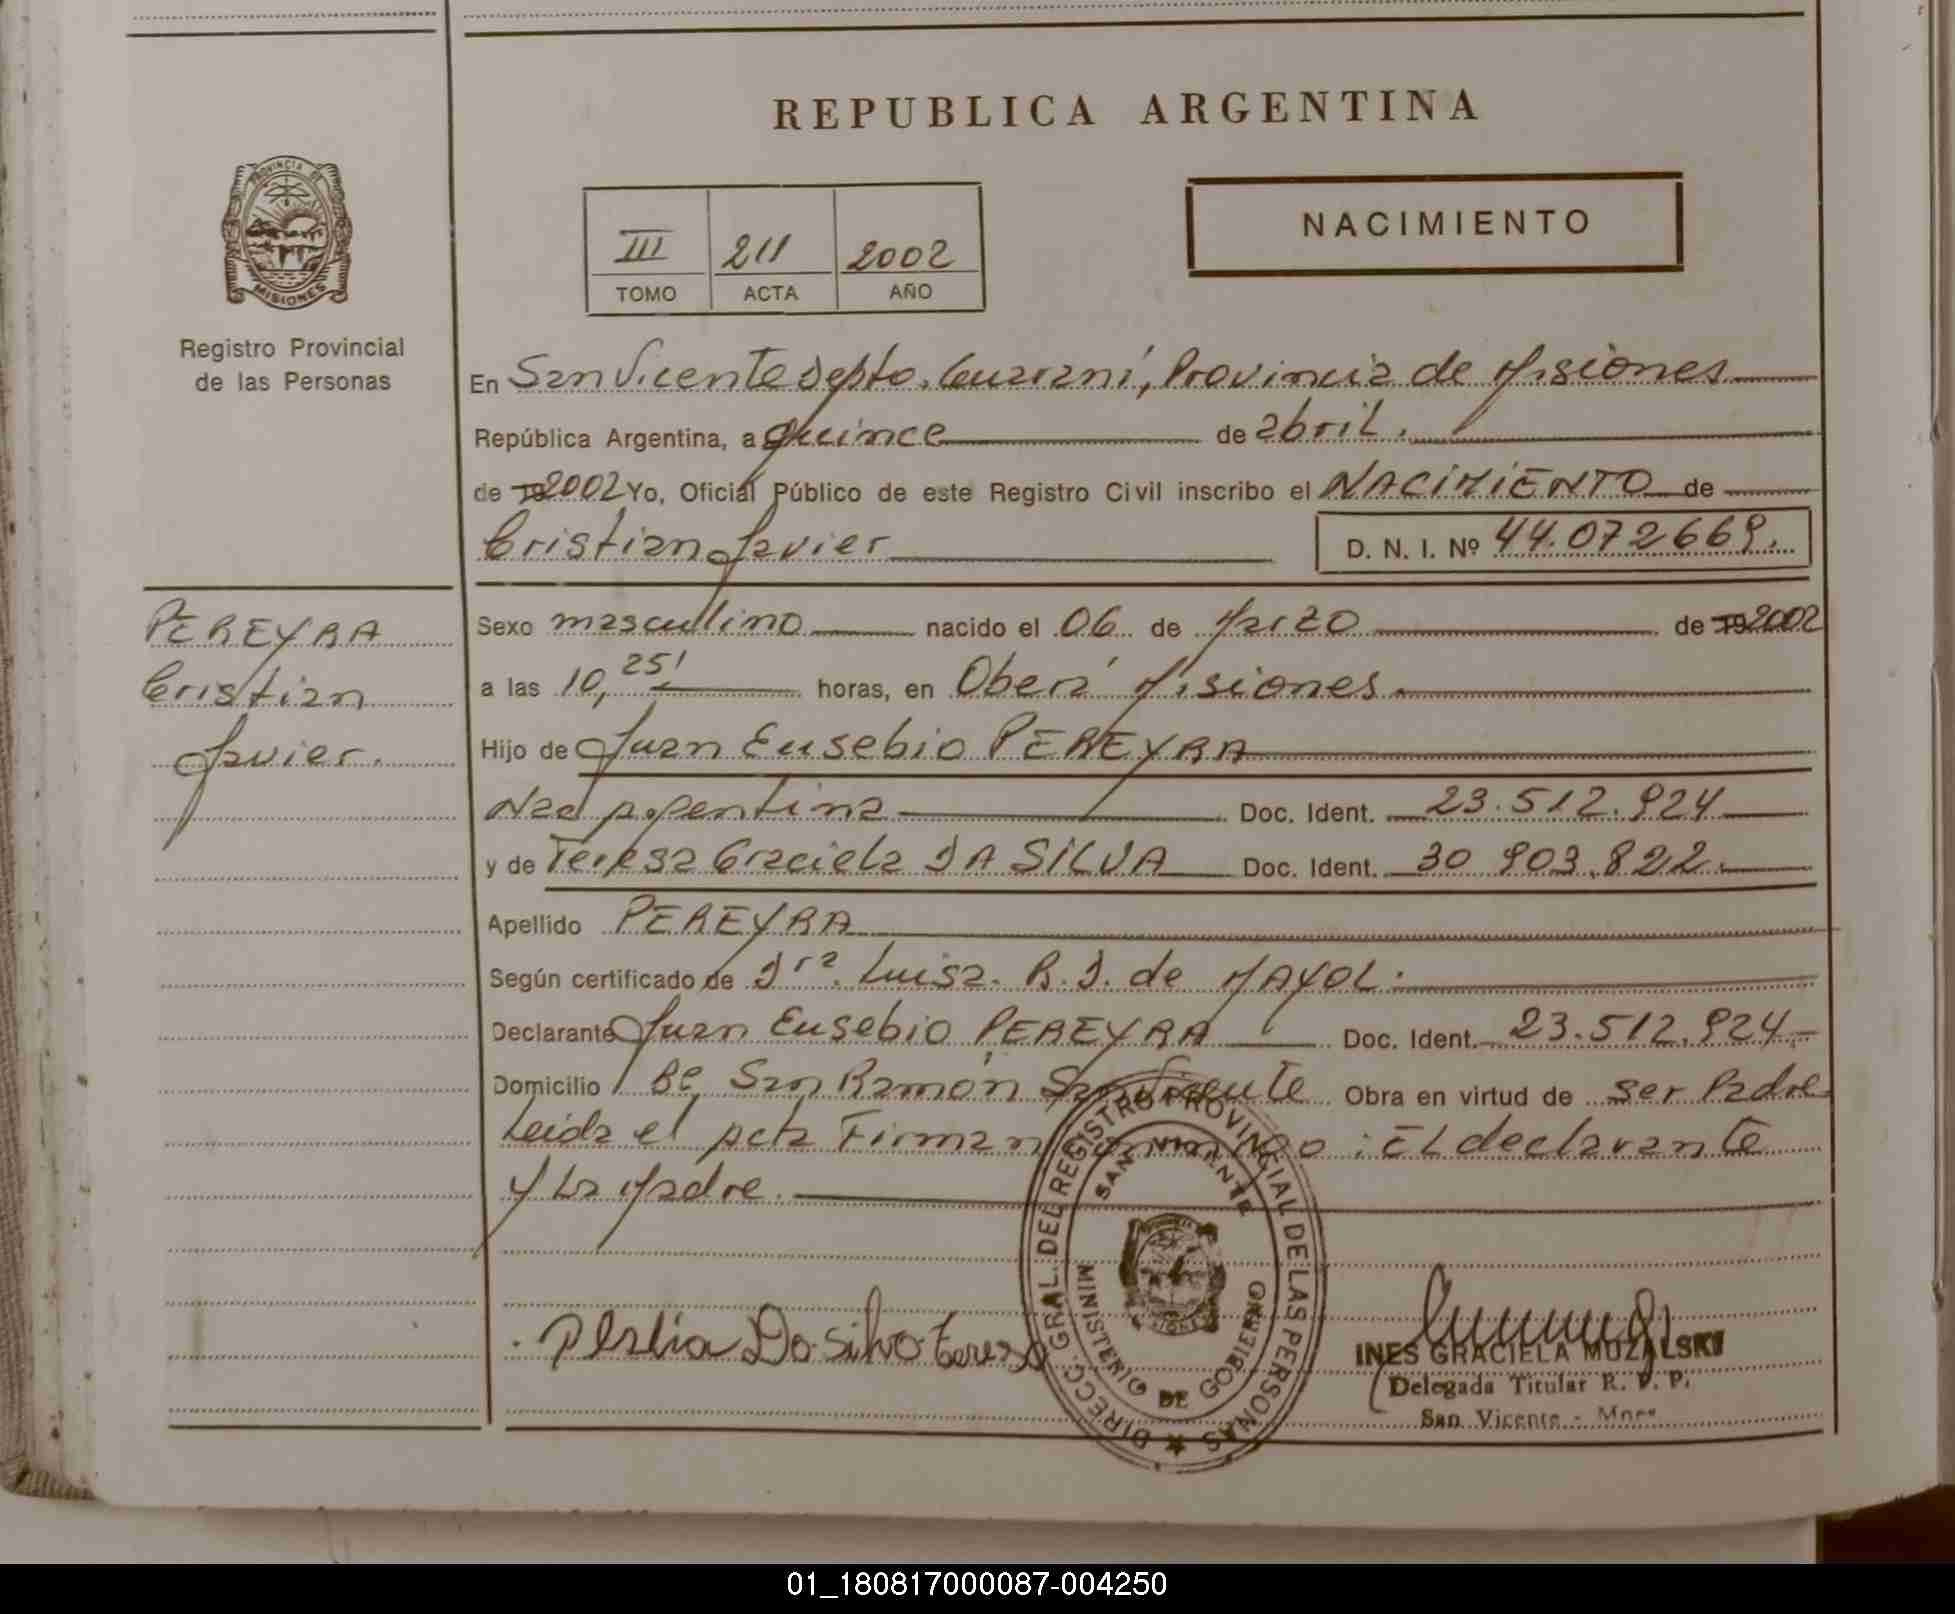 REPUBLICA ARGENTINA
PROVINCIA DE
MISIONES
Registro Provincial
de las Personas
III 211 2002
TOMO ACTA AÑO
NACIMIENTO
En San Vicente Depto. Guaraní, Provincia de Misiones
República Argentina, a quince de abril.
de 19 2002 Yo, Oficial Público de este Registro Civil inscribo el NACIMIENTO de
Cristian Javier
D. N. I. Nº 44.072669.
PEREYRA
Cristian
Javier.
Sexo masculino nacido el 06 de Marzo de 19 2002
a las 10,25' horas, en Oberá Misiones.
Hijo de Juan Eusebio PEREYRA
Nac Argentina Doc. Ident. 23.512.924
y de Teresa Graciela DA SILVA Doc. Ident. 30 903.822.
Apellido PEREYRA
Según certificado de Dra. Luisa. R.D. de MAYOL.
Declarante Juan Eusebio PEREYRA Doc. Ident. 23.512.924.-
Domicilio Bº San Ramón San Vicente Obra en virtud de ser Padre
Leída el acta Firman conmigo: El declarante
y la Madre.
DIRECC. GRAL. DEL REGISTRO PROVINCIAL DE LAS PERSONAS
SAN VICENTE
MINISTERIO DE GOBIERNO
Da Silva Teresa
INES GRACIELA MUZALSKI
Delegada Titular R. P. P.
San Vicente - Mnes
01_180817000087-004250